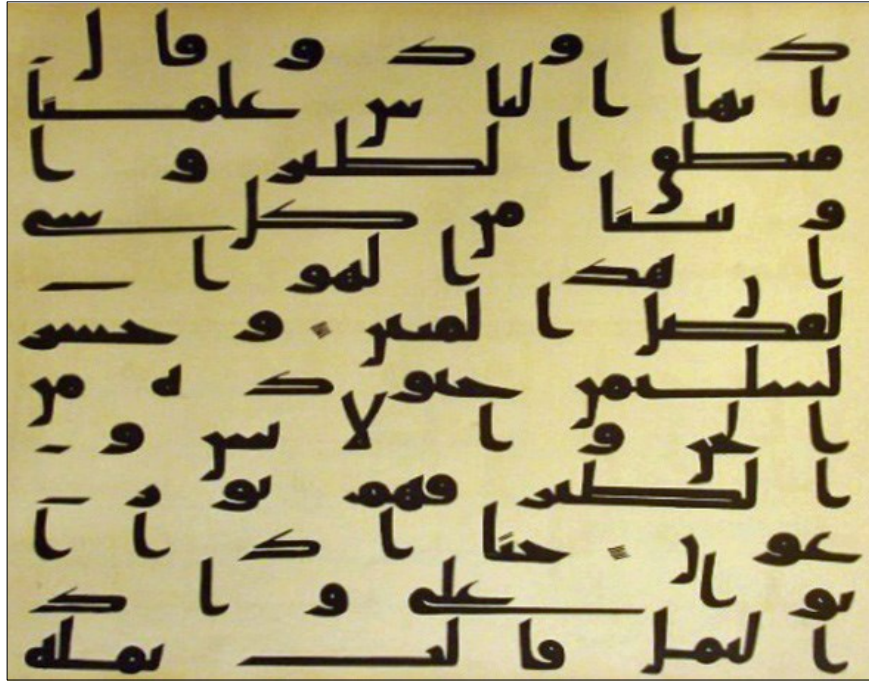 داود وقال
يايها الناس علمنا
منطق الطير وا
وتينا من كل شى
ان هذا لهو ا
لفضل المبين وحشر
لسليمن جنوده من
الجن والانس و
الطير فهم يوز
عون حتى اذا ا
توا على واد
النمل قالت نملة